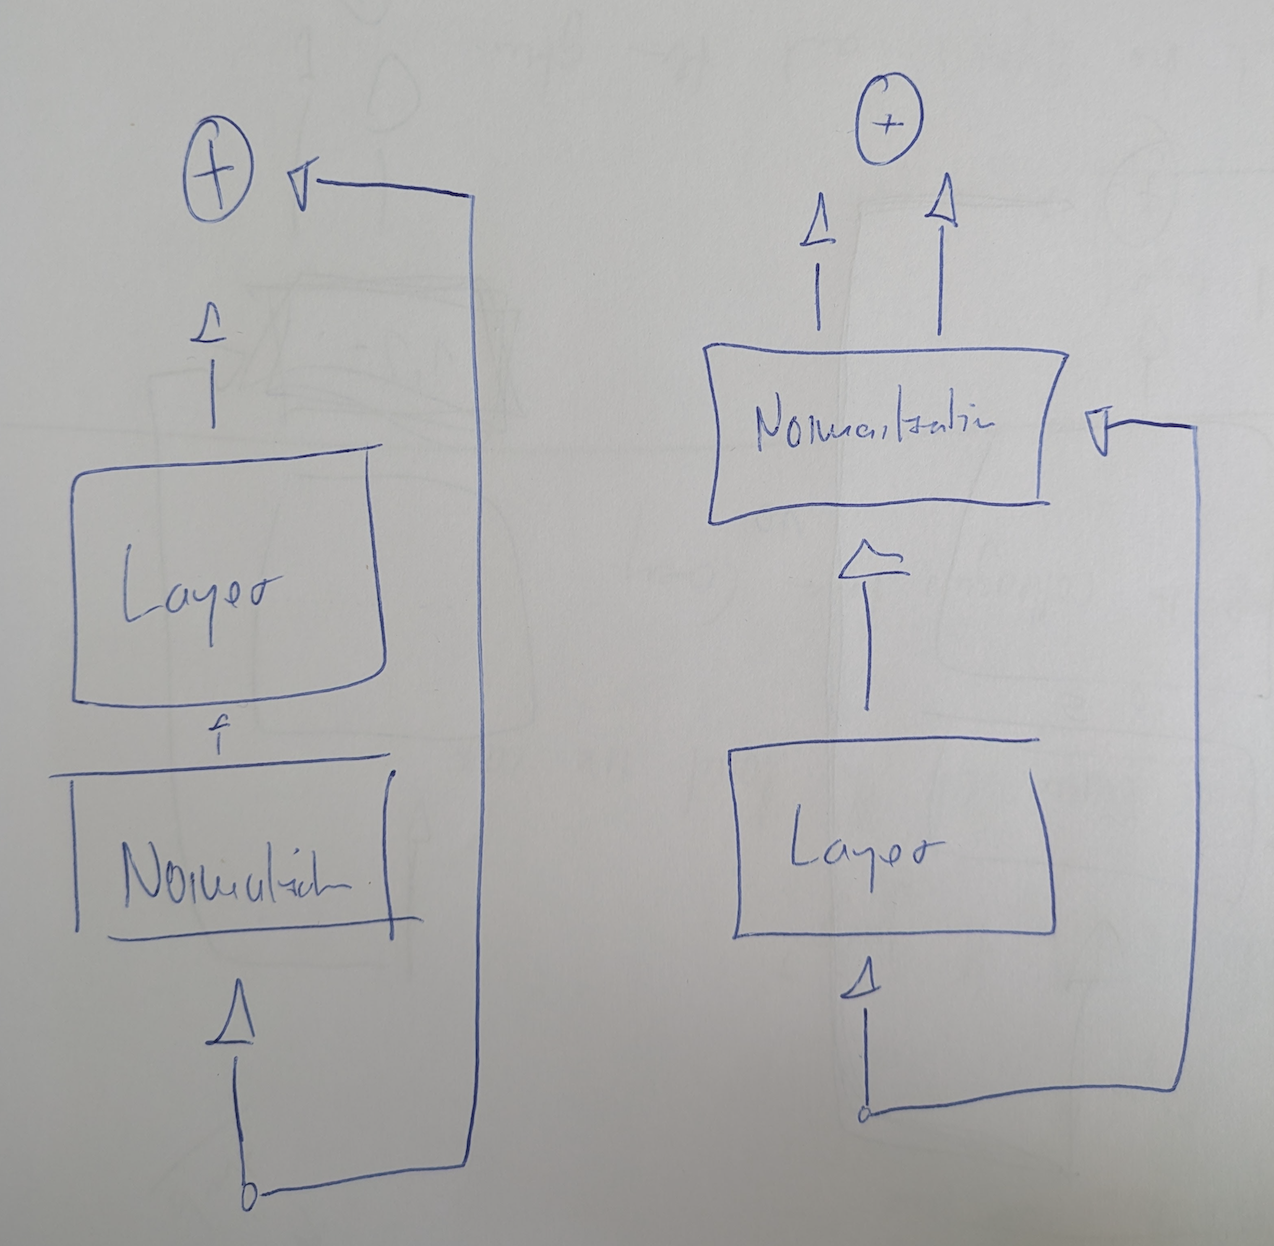 +
Layer
Normalization
+
Normalization
Layer